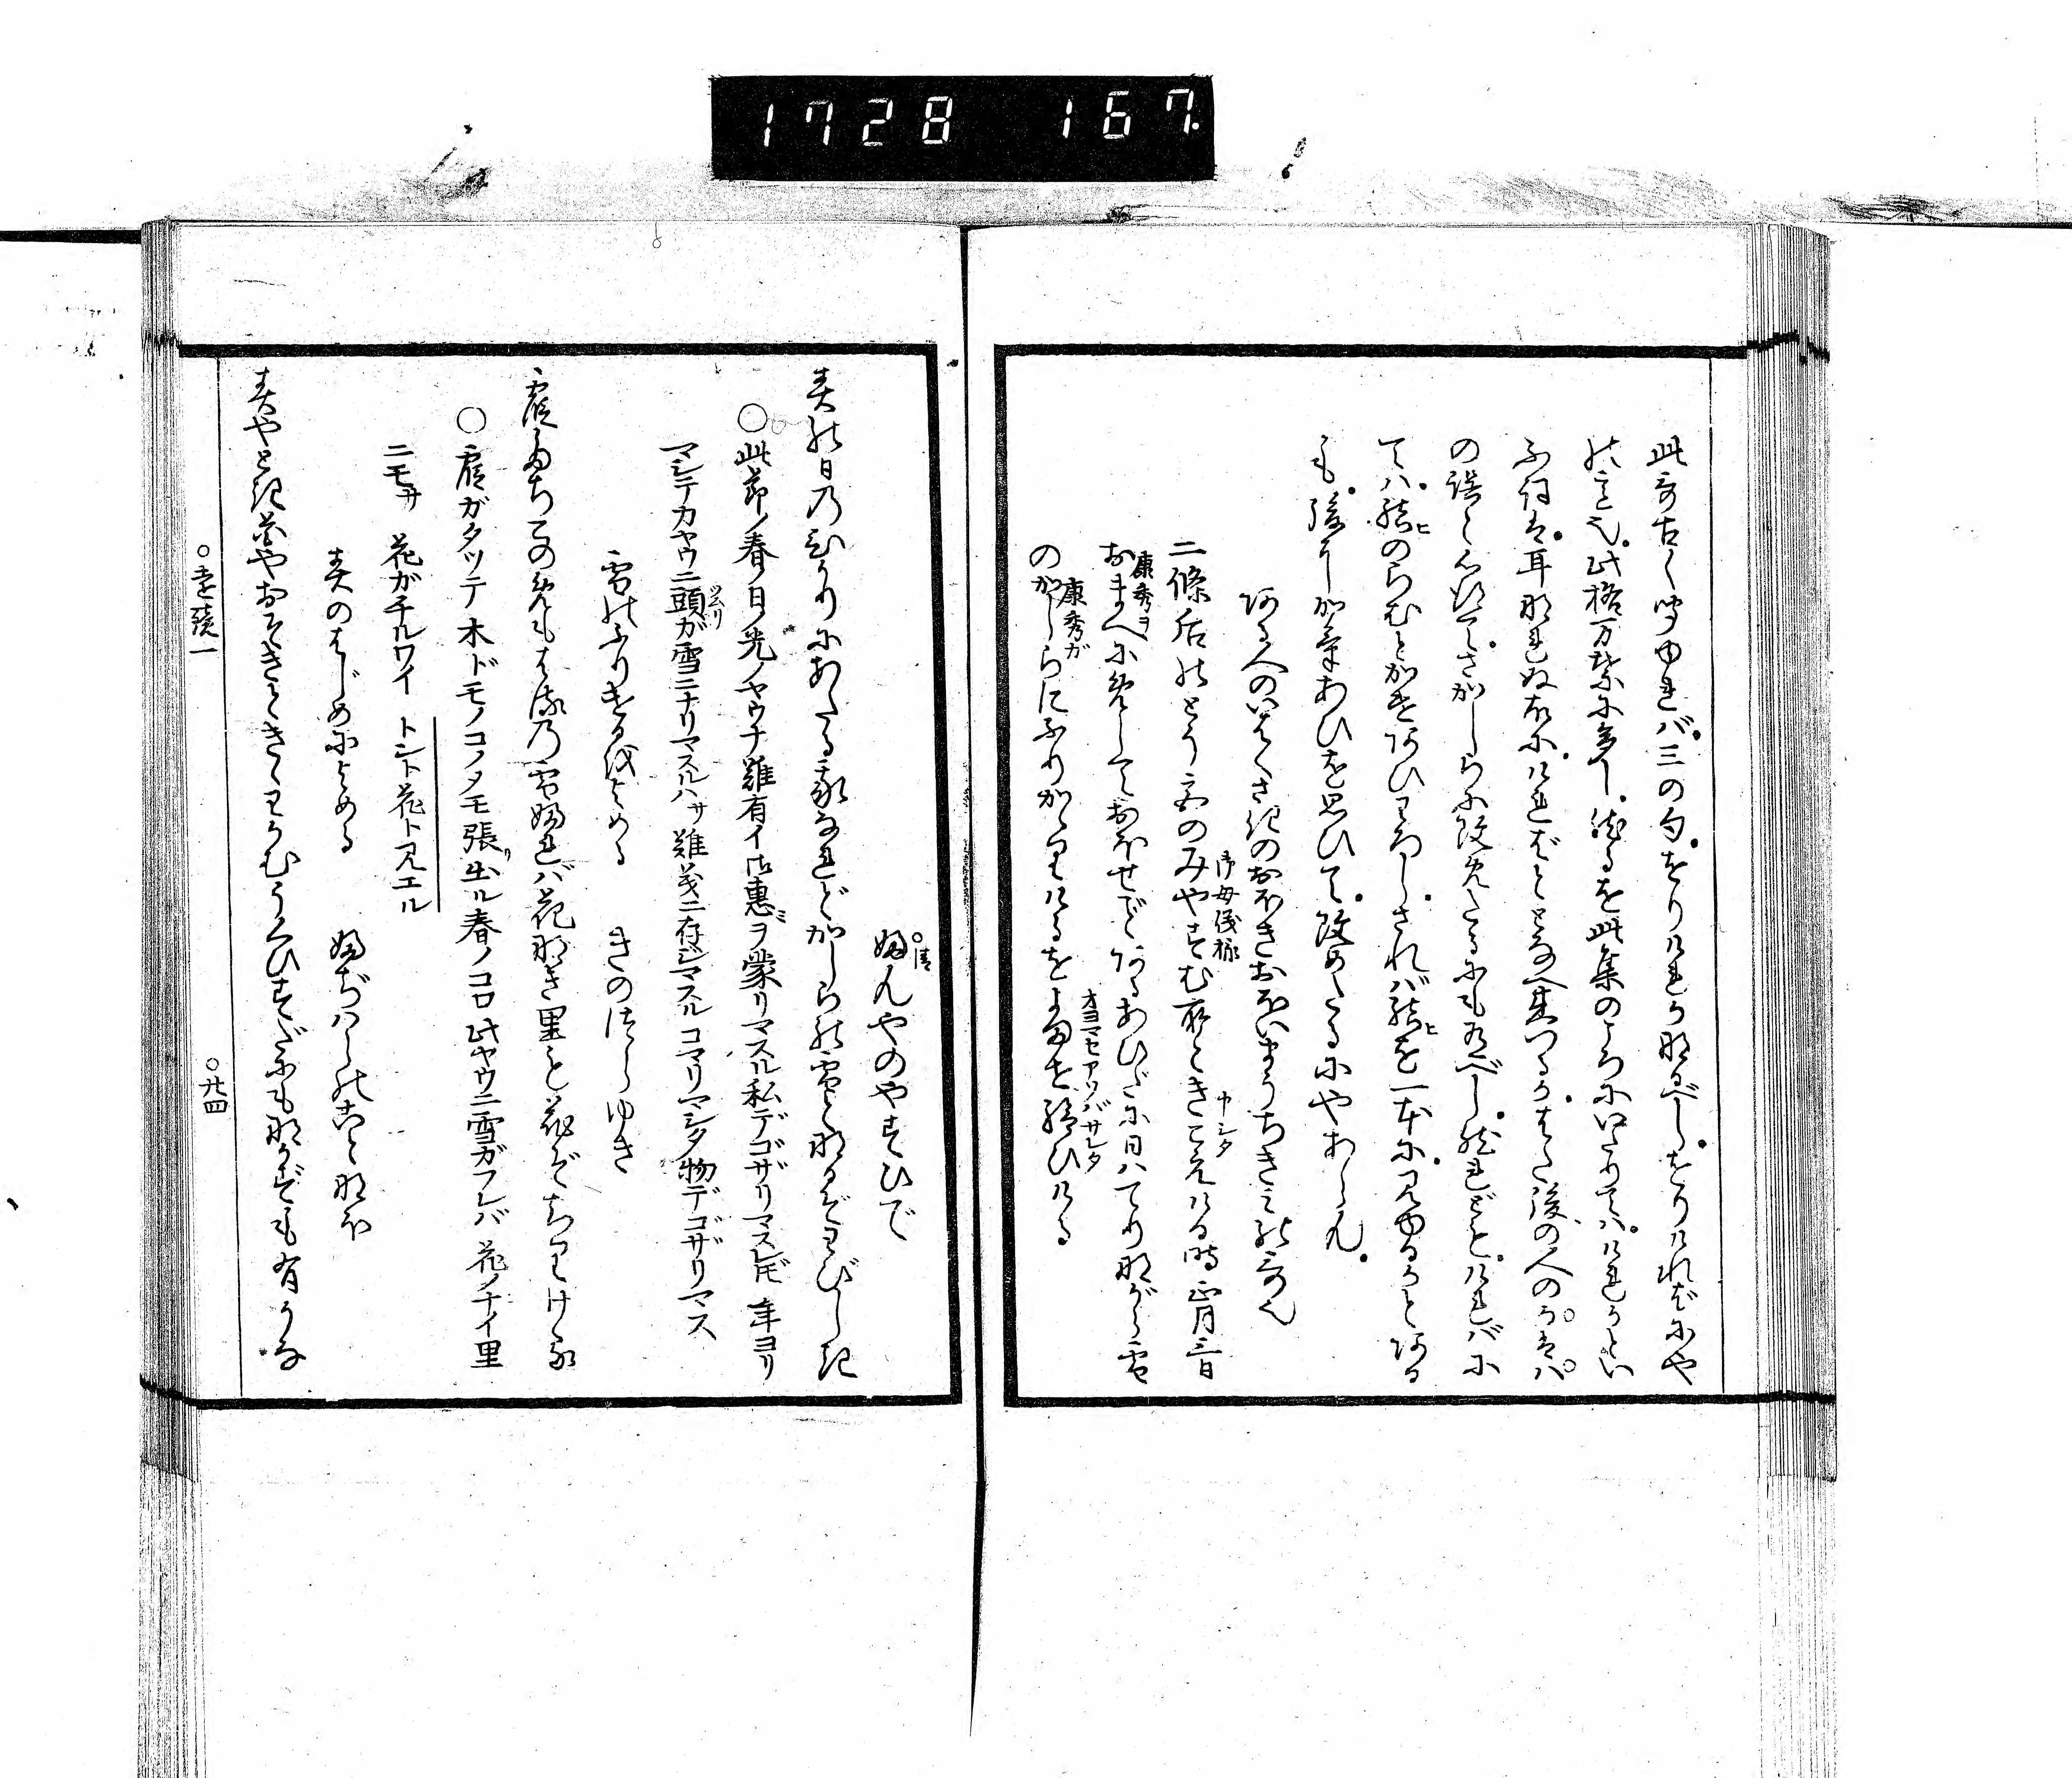 1728 167
此哥古く聞ゆれバ。三の句。をりけれかなるべし。をりければにや
の意也。此格万葉に多し。然るを此集のころにいたりてハ。けれかとい
ふ詞は。耳なれぬ故に。
の誤と心得て。さかしらに改めたるにも有べし。然れども。ければに
てハ。結のらむとかけあひわろし。されバ結を一本に。見ゆるかとある
も。後にしかかけあひを思ひて。改めたるにやあらん。
ある人のいはくさきのおほきおほいまうちきみの哥也
二條后のとう宮のみやすむ所ときこえける時正月三日
御母儀様
申シタ
おまへにめしておほせごとあるあひだに日ハてりながら雪
康秀ヲ
のかしらにふりかゝりけるをよませ給ひける
康秀ガ
オヨマセアソバサレタ
ふんやのやすひで
○清
春の日のひかりにあたる我なれどかしらの雪となるぞわびしき
○此節ノ春ノ日ノ光ノヤウナ難有イ御恵ミヲ蒙リマスル私デゴザリマスレドモ 年ヨリ
マシテカヤウニ頭ガ雪ニナリマスルハサ難義ニ存ジマスル コマリマシタ物デゴザリマス
ツムリ
雪のふりけるをよめる きのつらゆき
霞たちこのめもはるの雪ふれバ花なき里も花ぞちりける
○霞ガタツテ木ドモノコノメモ張リ出ル春ノコロ此ヤウニ雪ガフレバ 花ノナイ里
ニモサ 花ガチルワイ トント花ト見エル
春のはじめによめる ふぢハらのことなほ
春やとき花やおそきときゝわかむうぐひすだにもなかずも有かな
○遠鏡一 ○廿四